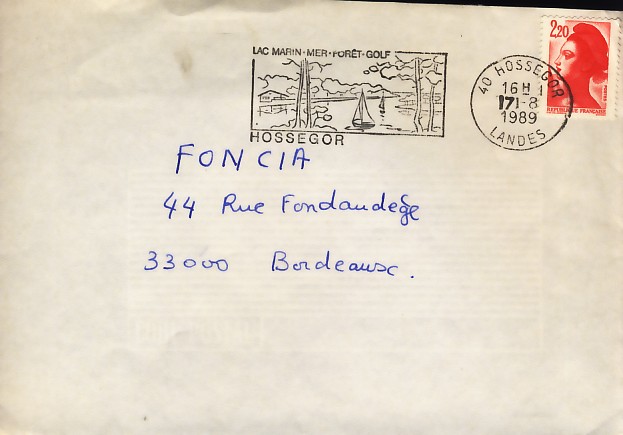 LAC MARIN·MER·FORÊT·GOLF
HOSSEGOR
40 HOSSEGOR
16H
17-8
1989
LANDES
2,20
REPUBLIQUE FRANÇAISE
FONCIA
44 Rue Fondaudège
33000 Bordeaux.